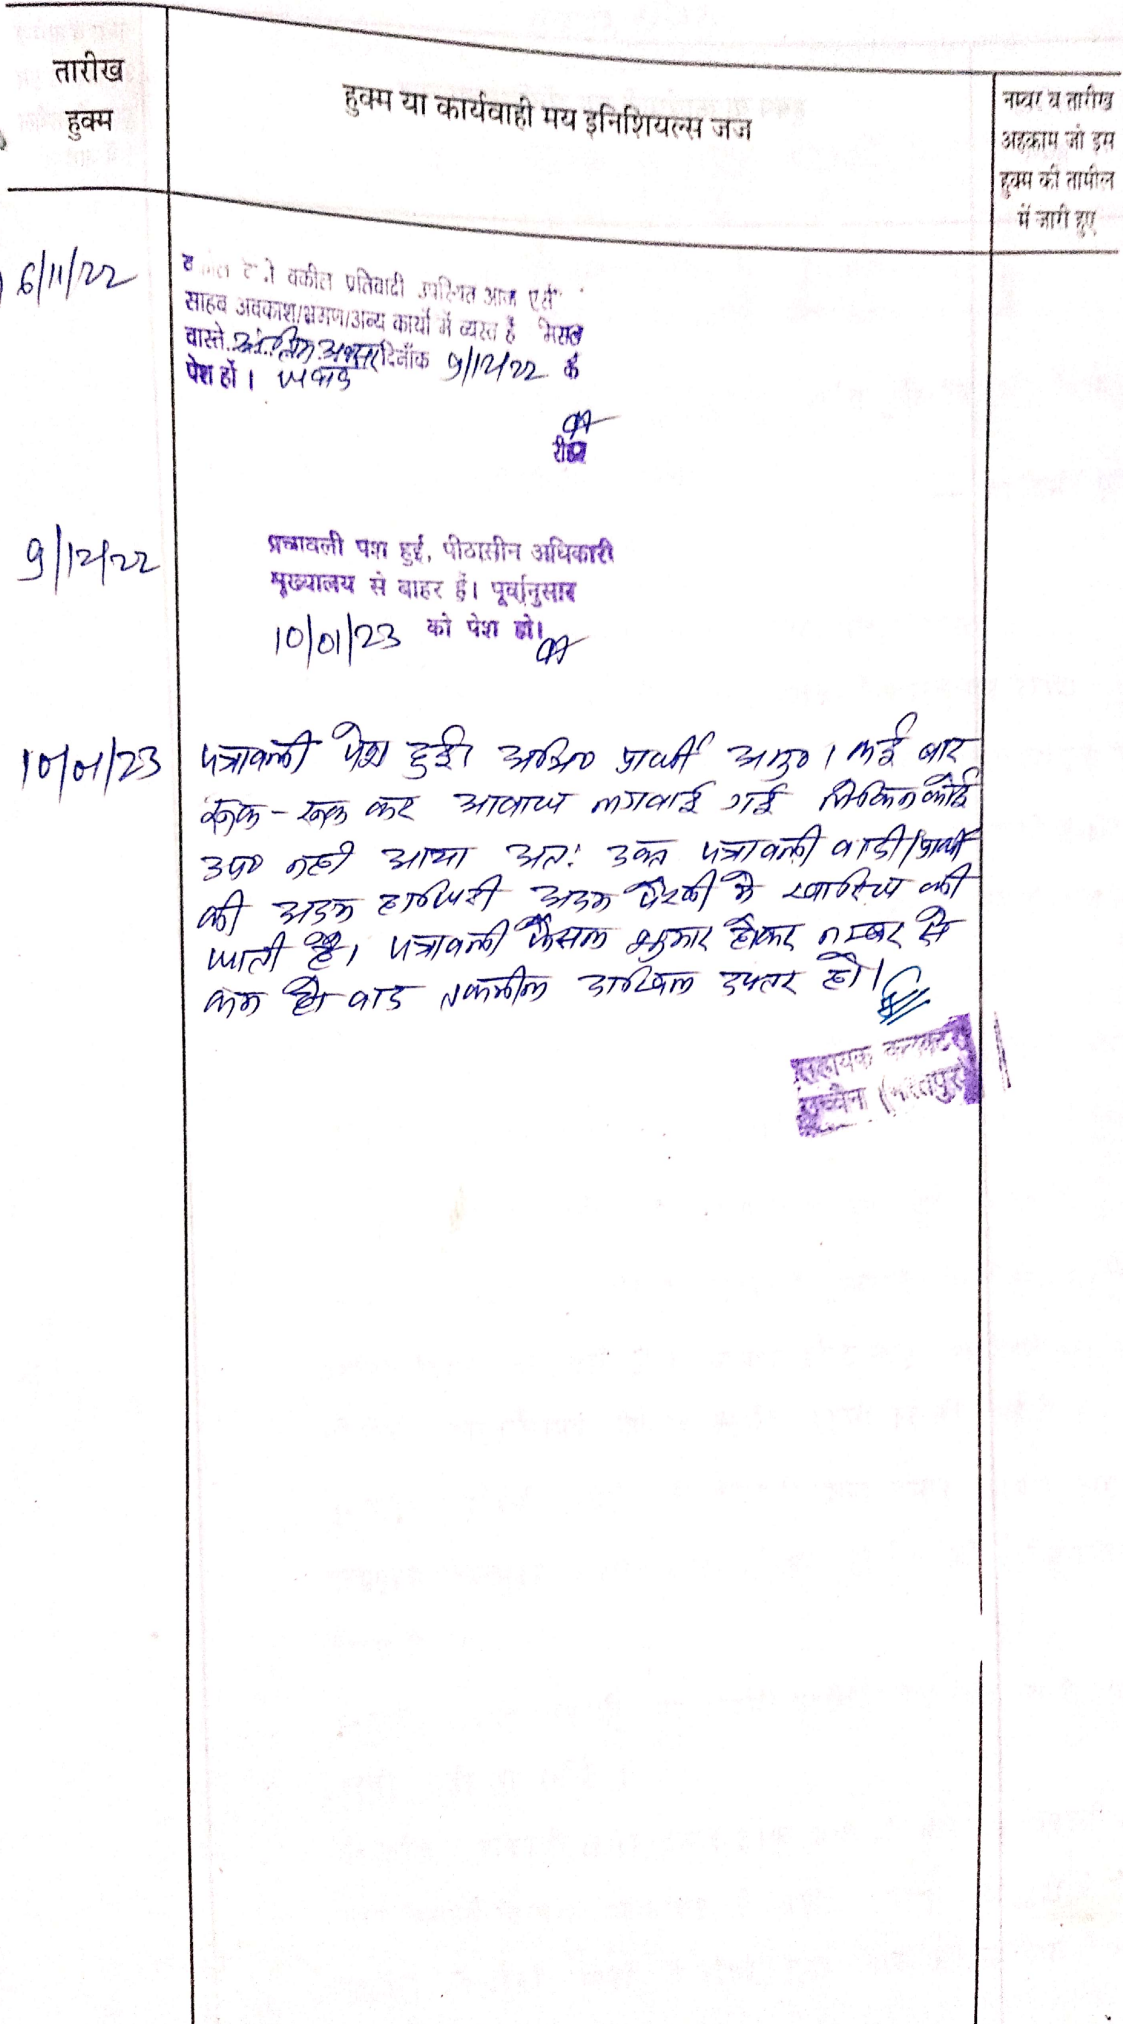 तारीख
हुक्म
हुक्म या कार्यवाही मय इनिशियल्स जज
नम्बर व तारीख
अहकाम जो इस
हुक्म की तामील
में जारी हुए
6/11/22
वकील प्रतिवादी उपस्थित आज
साहब अवकाश/भ्रमण/अन्य कार्यो में व्यस्त है मिसल
वास्ते अंतिम अवसर दिनाँक 9/12/22 कै
पेश हों।
रीडर
9/12/22
पत्रावली पेश हुई, पीठासीन अधिकारी
मुख्यालय से बाहर हैं। पूर्वानुसार
10/01/23 को पेश हो।
10/01/23
पत्रावली पेश हुई। अभि० प्रार्थी अनु०। कई बार
रूक-रूक कर आवाज लगवाई गई लेकिन कोई
उप० नही आया अत: उक्त पत्रावली वादी/प्रार्थी
की अदम हाजिरी अदम पैरवी मे खारिज की
जाती है। पत्रावली फैसल शुमार होकर नम्बर से
कम हो वाद तकमील दाखिल दफ्तर हो।
सहायक कलक्टर
उच्चैन (भरतपुर)